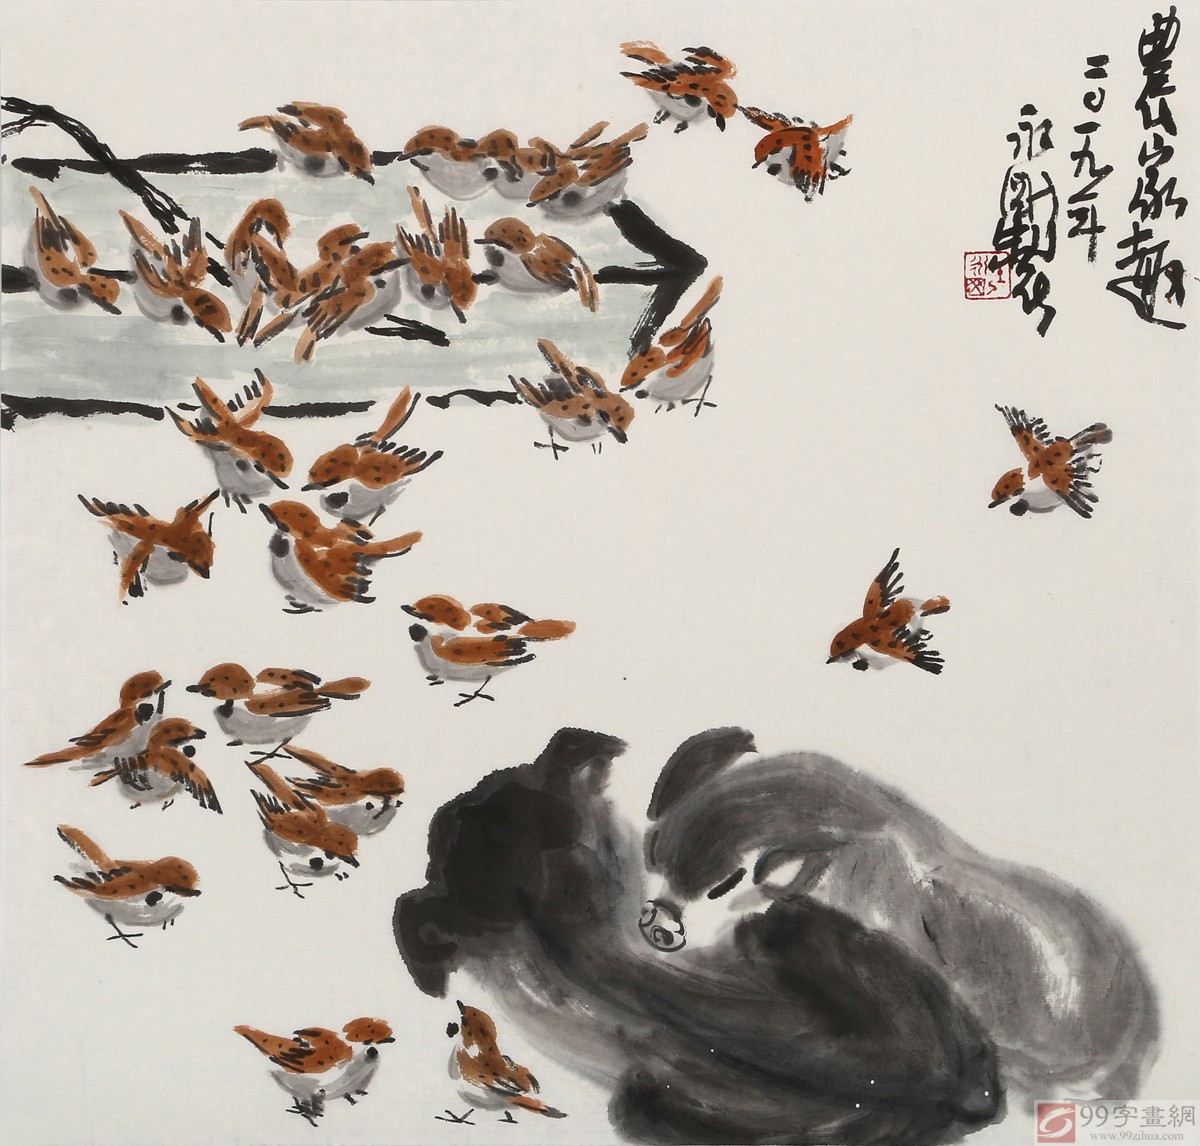 農家趣
二〇一九年
永
99字畫網
www.99zihua.com